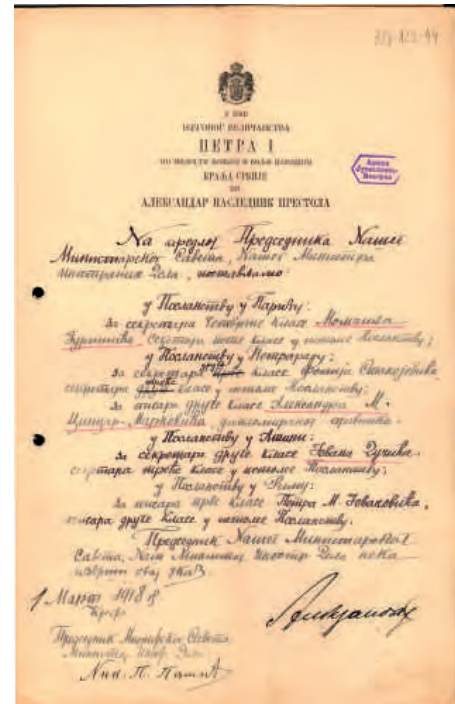 334-123-44
У ИМЕ
ЊЕГОВОГ ВЕЛИЧАНСТВА
ПЕТРА I
ПО МИЛОСТИ БОЖЈОЈ И ВОЉИ НАРОДНОЈ
КРАЉА СРБИЈЕ
МИ
АЛЕКСАНДАР НАСЛЕДНИК ПРЕСТОЛА
Архив
Југославије
Београд
На предлог Председника Нашег
Министарског Савета, Нашег Министра
иностраних Дела, постављамо:
у Посланству у Паризу:
За секретара четврте класе Момчила
Јуришића, секретара пете класе у истоме Посланству;
у Посланству у Петрограду:
За секретара друге класе
секретара треће класе у истоме Посланству;
За писара друге класе Александра М.
Цинцар-Марковића,
у Посланству у Атини:
За секретара друге класе Јована Дучића,
секретара треће класе у истоме Посланству;
у Посланству у Риму:
За писара прве класе Петра М. Јовановића,
писара друге класе у истоме Посланству.
Председник Нашег Министарског
Савета, Наш Министар Иностр. Дела нека
изврши овај указ.
1 Марта 1918 г
Крф
Председник Министарског Савета
Министар Иностр. Дела
Ник. П. Пашић
Александар